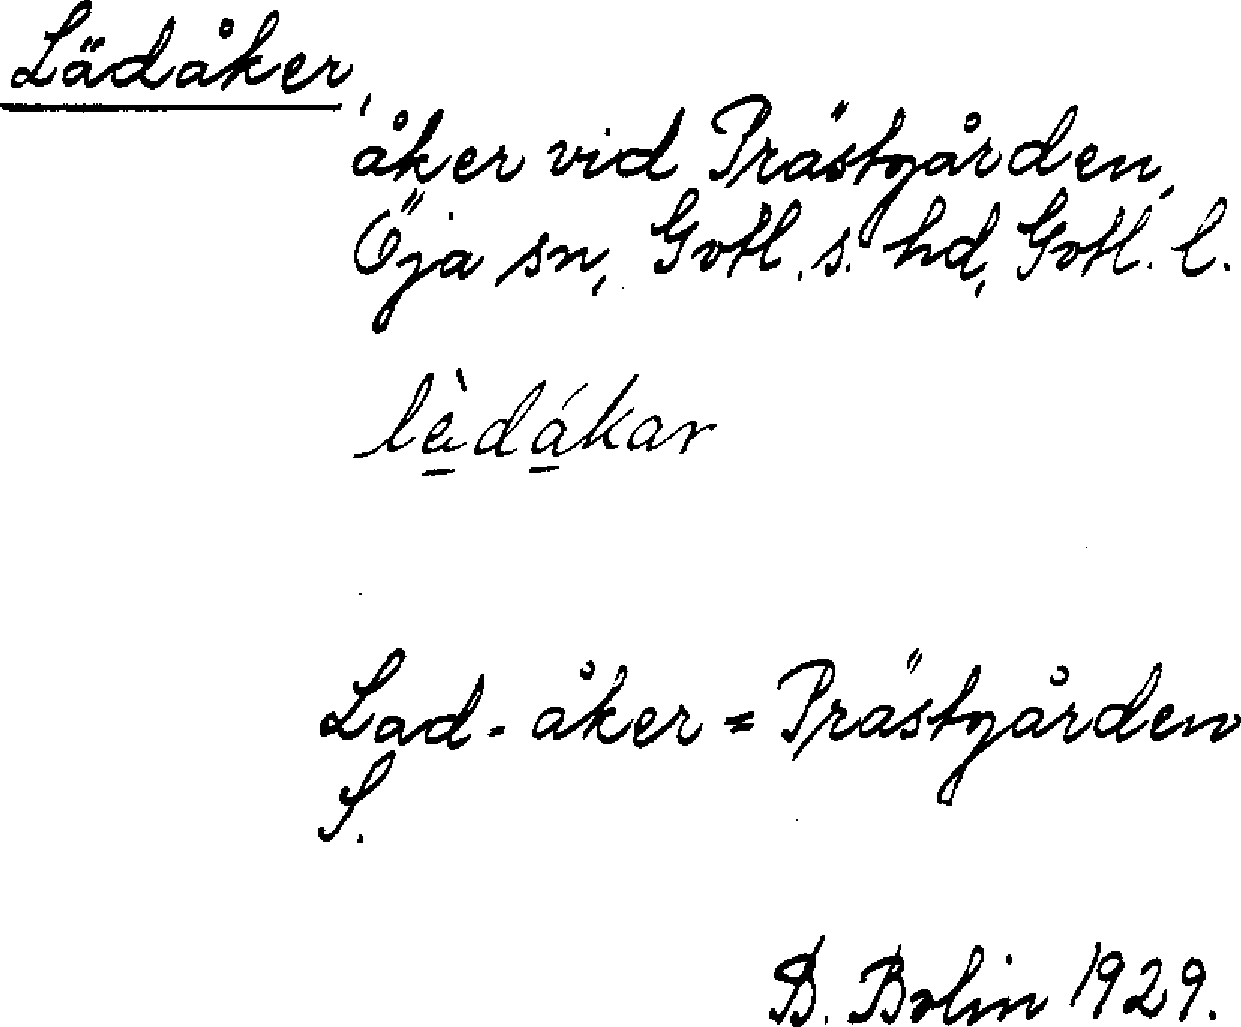 Lädåker,
åker vid Prästgården,
Öja sn, Gotl. s. hd, Gotl. l.
lèdákar
Lad-åker = Prästgården
S.
D. Bolin 1929.